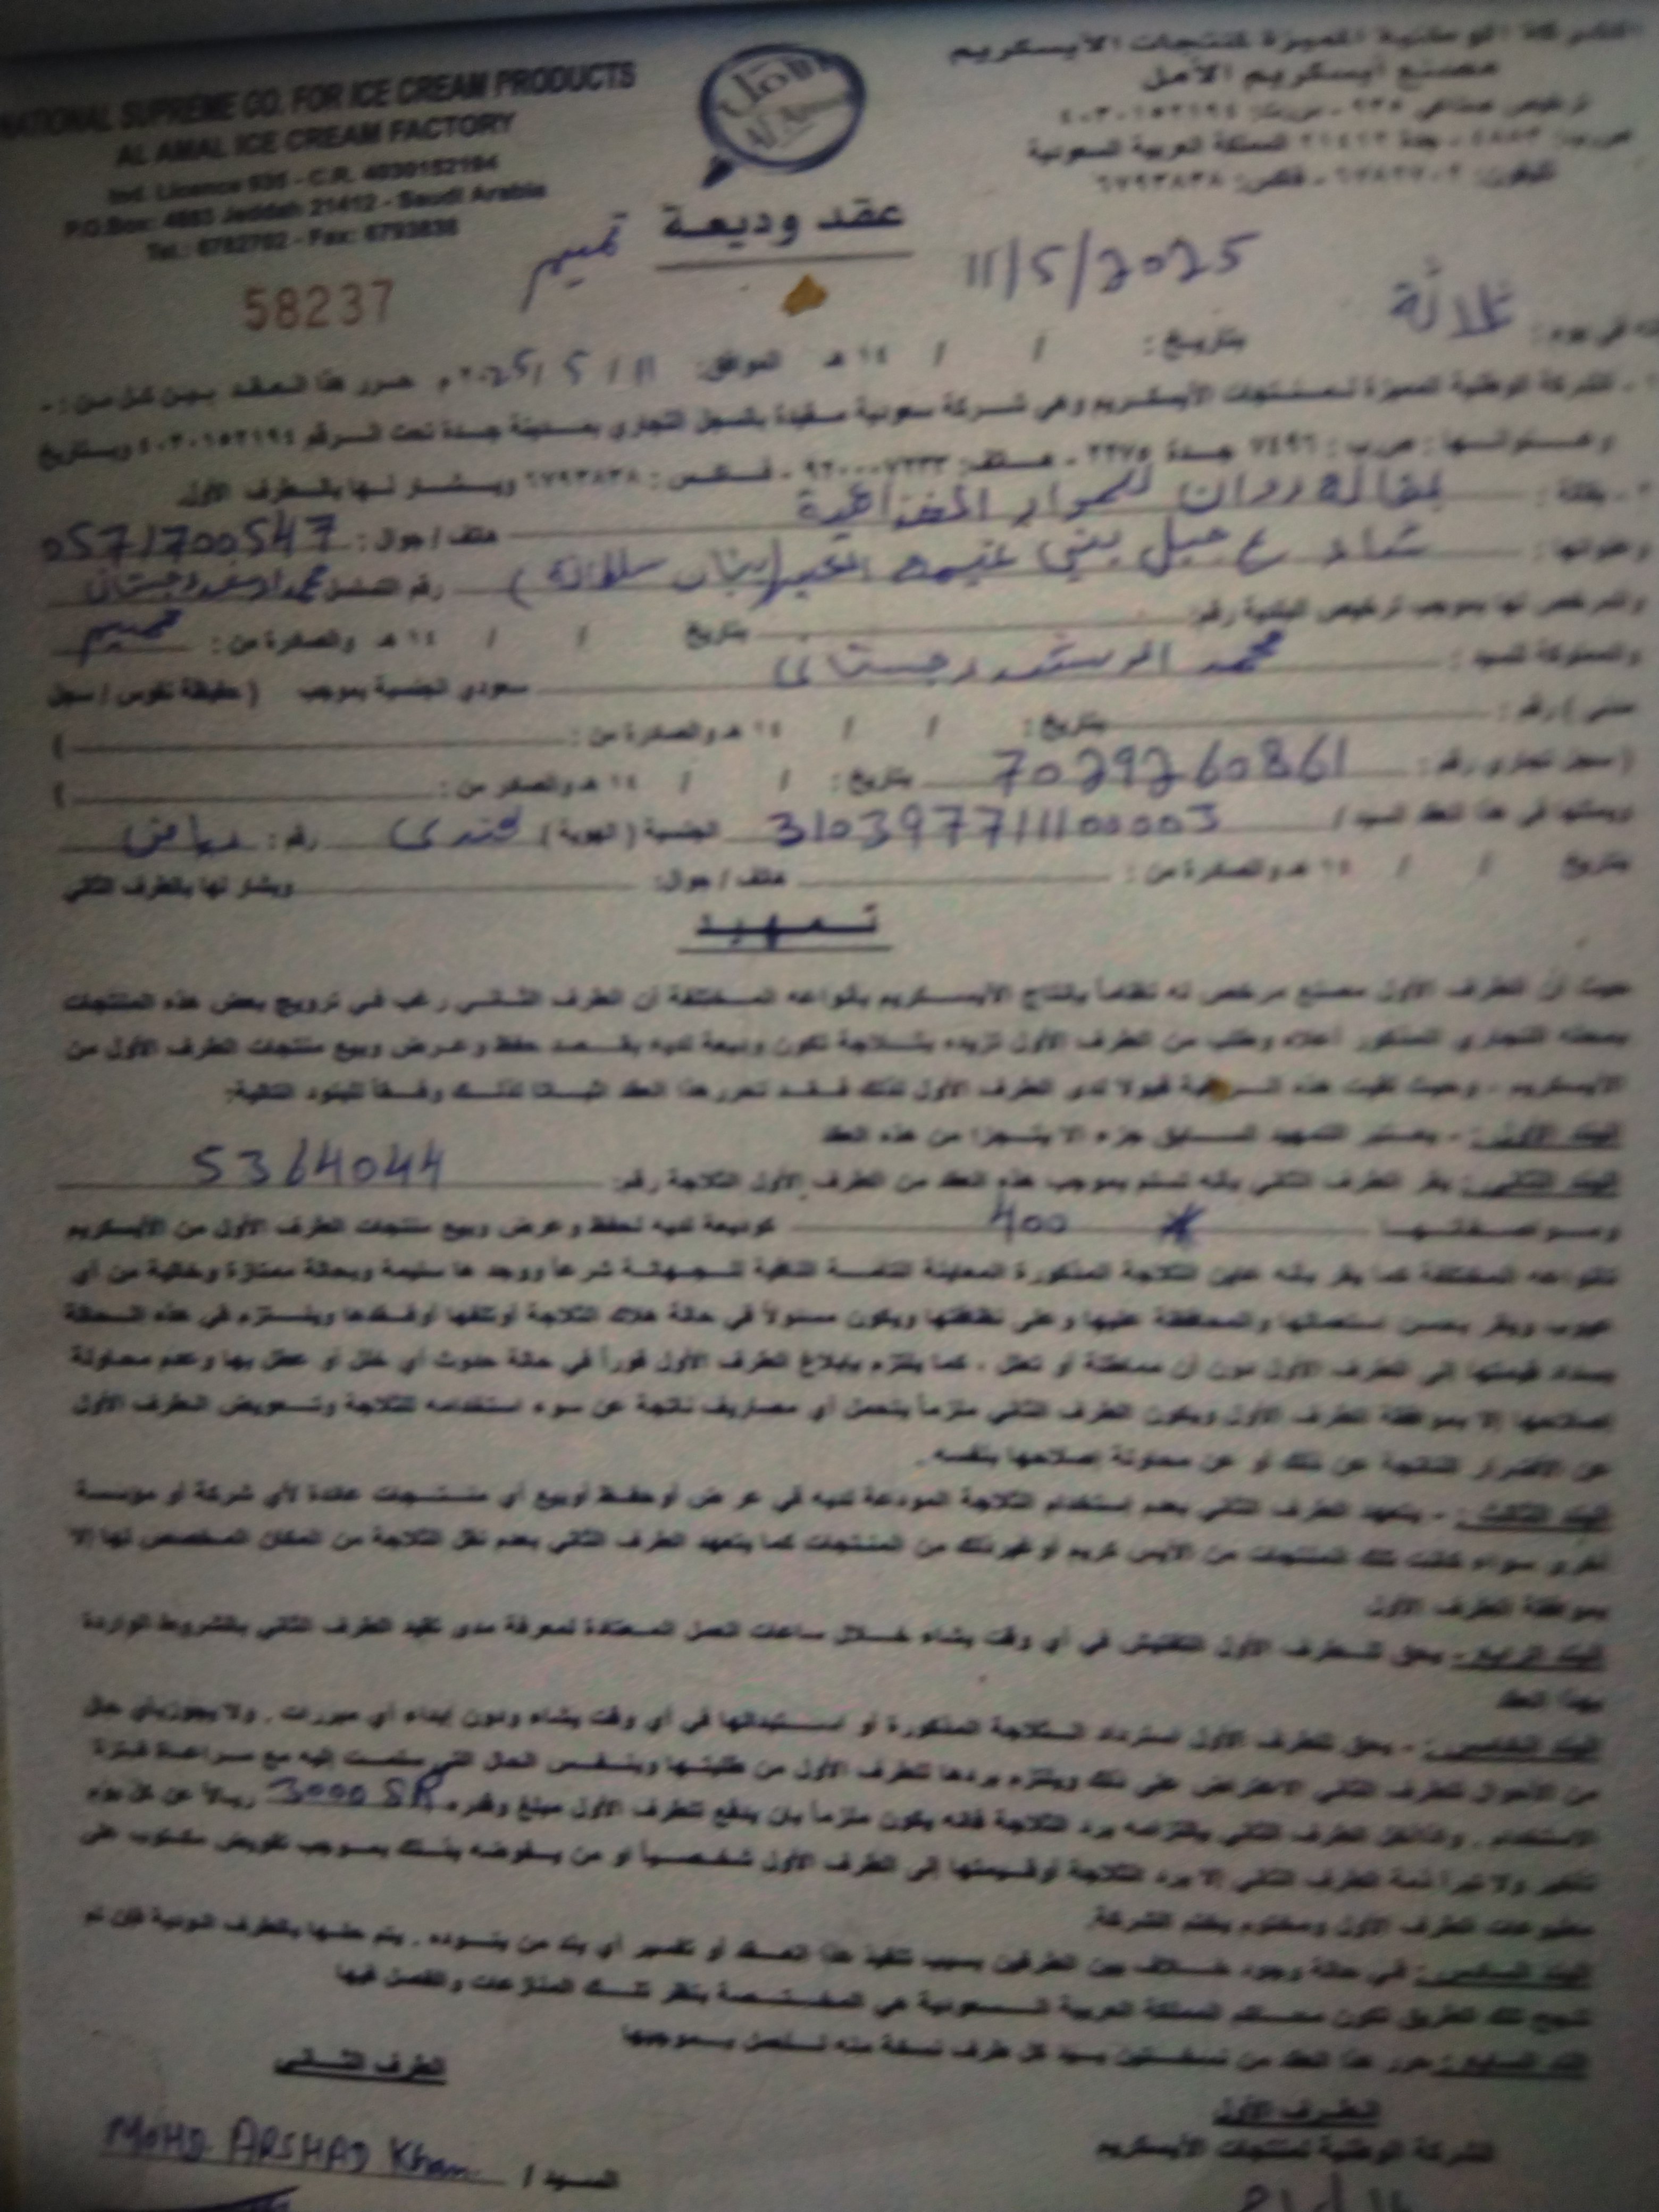 الشركة الوطنية المميزة لمنتجات الآيسكريم
مصنع آيسكريم الأمل
ترخيص صناعي ٩٣٥ - س.ت: ٤٠٣٠١٥٢١٩٤
ص.ب: ٤٨٨٣ - جدة ٢١٤١٢ المملكة العربية السعودية
تليفون: ٦٧٨٢٧٠٢ - فاكس: ٦٧٩٣٨٣٨
NATIONAL SUPREME CO. FOR ICE CREAM PRODUCTS
AL AMAL ICE CREAM FACTORY
Ind. Licence 935 - C.R. 4030152194
P.O.Box: 4883 Jeddah 21412 - Saudi Arabia
Tel.: 6782702 - Fax: 6793838
عقد وديعة
58237
11/5/2025
ثلاثة
بتاريخ : / / ١٤ هـ الموافق: 11 / 5 / 2025 م حرر هذا العقد بين كل من : -
١ - الشركة الوطنية المميزة لمنتجات الآيسكريم وهي شركة سعودية مقيدة بالسجل التجاري بمدينة جدة تحت الرقم ٤٠٣٠١٥٢١٩٤ وبتاريخ
وعنوانها : ص.ب : ٧٤٩٦ جدة ٢٣٧٥ - هاتف: ٩٢٠٠٠٧٢٣٣ - فاكس : ٦٧٩٣٨٣٨ ويشار لها بالطرف الأول
٢ - بقالة : بقالة روان للمواد الغذائية هاتف / جوال : 0571700547
وعنوانها : شارع جبل بني
والمرخص لها بموجب ترخيص البلدية رقم: بتاريخ / / ١٤ هـ والصادرة من :
والمملوكة للسيد : محمد سعودي الجنسية بموجب ( حفيظة نفوس / سجل
مدني ) رقم : بتاريخ : / / ١٤ هـ والصادرة من : )
( سجل تجاري رقم : 7029260861 بتاريخ : / / ١٤ هـ والصادر من : )
ويمثلها في هذا العقد السيد / 310397711100003 الجنسية ( الهوية ) رقم : رياض
بتاريخ / / ١٤ هـ والصادرة من : هاتف / جوال: ويشار لها بالطرف الثاني
تمهيد
حيث أن الطرف الأول مصنع مرخص له نظاماً بإنتاج الآيسكريم بأنواعه المختلفة أن الطرف الثاني رغب في ترويج بعض هذه المنتجات
بمحله التجاري المذكور أعلاه وطلب من الطرف الأول تزيده بثلاجة تكون وديعة لديه بقصد حفظ وعرض وبيع منتجات الطرف الأول من
الآيسكريم - وحيث لقيت هذه الرغبة قبولا لدى الطرف الأول لذلك فقد تحرر هذا العقد اثباتا لذلك وفقاً للبنود التالية:
البند الأول : - يعتبر التمهيد السابق جزء لا يتجزا من هذه العقد
البند الثاني : يقر الطرف الثاني بأنه تسلم بموجب هذه العقد من الطرف الأول الثلاجة رقم: 5364044
ومواصفاتها 400 كوديعة لديه لحفظ وعرض وبيع منتجات الطرف الأول من الآيسكريم
بأنواعه المختلفة كما يقر بأنه عاين الثلاجة المذكورة المعاينة التامة النافية للجهالة شرعاً ووجدها سليمة وبحالة ممتازة وخالية من أي
عيوب ويقر بحسن استعمالها والمحافظة عليها وعلى نظافتها ويكون مسئولاً في حالة هلاك الثلاجة أو تلفها أو فقدها ويلتزم في هذه الحالة
بسداد قيمتها إلى الطرف الأول دون أن مماطلة أو تعلل ، كما يلتزم بإبلاغ الطرف الأول فوراً في حالة حدوث أي خلل أو عطل بها وعدم محاولة
إصلاحها إلا بموافقة الطرف الأول ويكون الطرف الثاني ملزماً بتحمل أي مصاريف ناتجة عن سوء استخدامه للثلاجة وتعويض الطرف الأول
عن الأضرار الناتجة عن ذلك أو عن محاولة إصلاحها بنفسه .
البند الثالث : - يتعهد الطرف الثاني بعدم إستخدام الثلاجة المودعة لديه في عرض أو حفظ أو بيع أي منتجات عائدة لأي شركة أو مؤسسة
أخرى سواء كانت تلك المنتجات من الآيس كريم أو غير ذلك من المنتجات كما يتعهد الطرف الثاني بعدم نقل الثلاجة من المكان المخصص لها إلا
بموافقة الطرف الأول
البند الرابع - يحق للطرف الأول التفتيش في أي وقت يشاء خلال ساعات العمل المعتادة لمعرفة مدى تقيد الطرف الثاني بالشروط الواردة
بهذا العقد
البند الخامس : - يحق للطرف الأول استرداد الثلاجة المذكورة أو استبدالها في أي وقت يشاء ودون إبداء أي مبررات . ولا يجوز بأي حال
من الأحوال للطرف الثاني الاعتراض على ذلك ويلتزم بردها للطرف الأول من طلبتها وبنفس الحال التي سلمت إليه مع مراعاة فترة
الاستخدام . وإذا أخل الطرف الثاني بالتزامه برد الثلاجة فانه يكون ملزماً بان يدفع للطرف الأول مبلغ وقدره 3000 SR ريالاً عن كل يوم
تأخير ولا تبرأ ذمة الطرف الثاني إلا برد الثلاجة أو قيمتها إلى الطرف الأول شخصياً أو من يفوضه بذلك بموجب تفويض مكتوب على
مطبوعات الطرف الأول ومختوم بختم الشركة.
البند السادس : في حالة وجود خلاف بين الطرفين بسبب تنفيذ هذا العقد أو تفسير أي بند من بنوده . يتم حلها بالطرف الودية فإن لم
تنجح تلك الطريق تكون محاكم المملكة العربية السعودية هي المختصة بنظر تلك المنازعات والفصل فيها
البند السابع : حرر هذا العقد من نسختين بيد كل طرف نسخة منه للعمل بموجبها
الطرف الأول
الشركة الوطنية لمنتجات الآيسكريم
الطرف الثاني
السيد / MOHD ARSHAD Khan